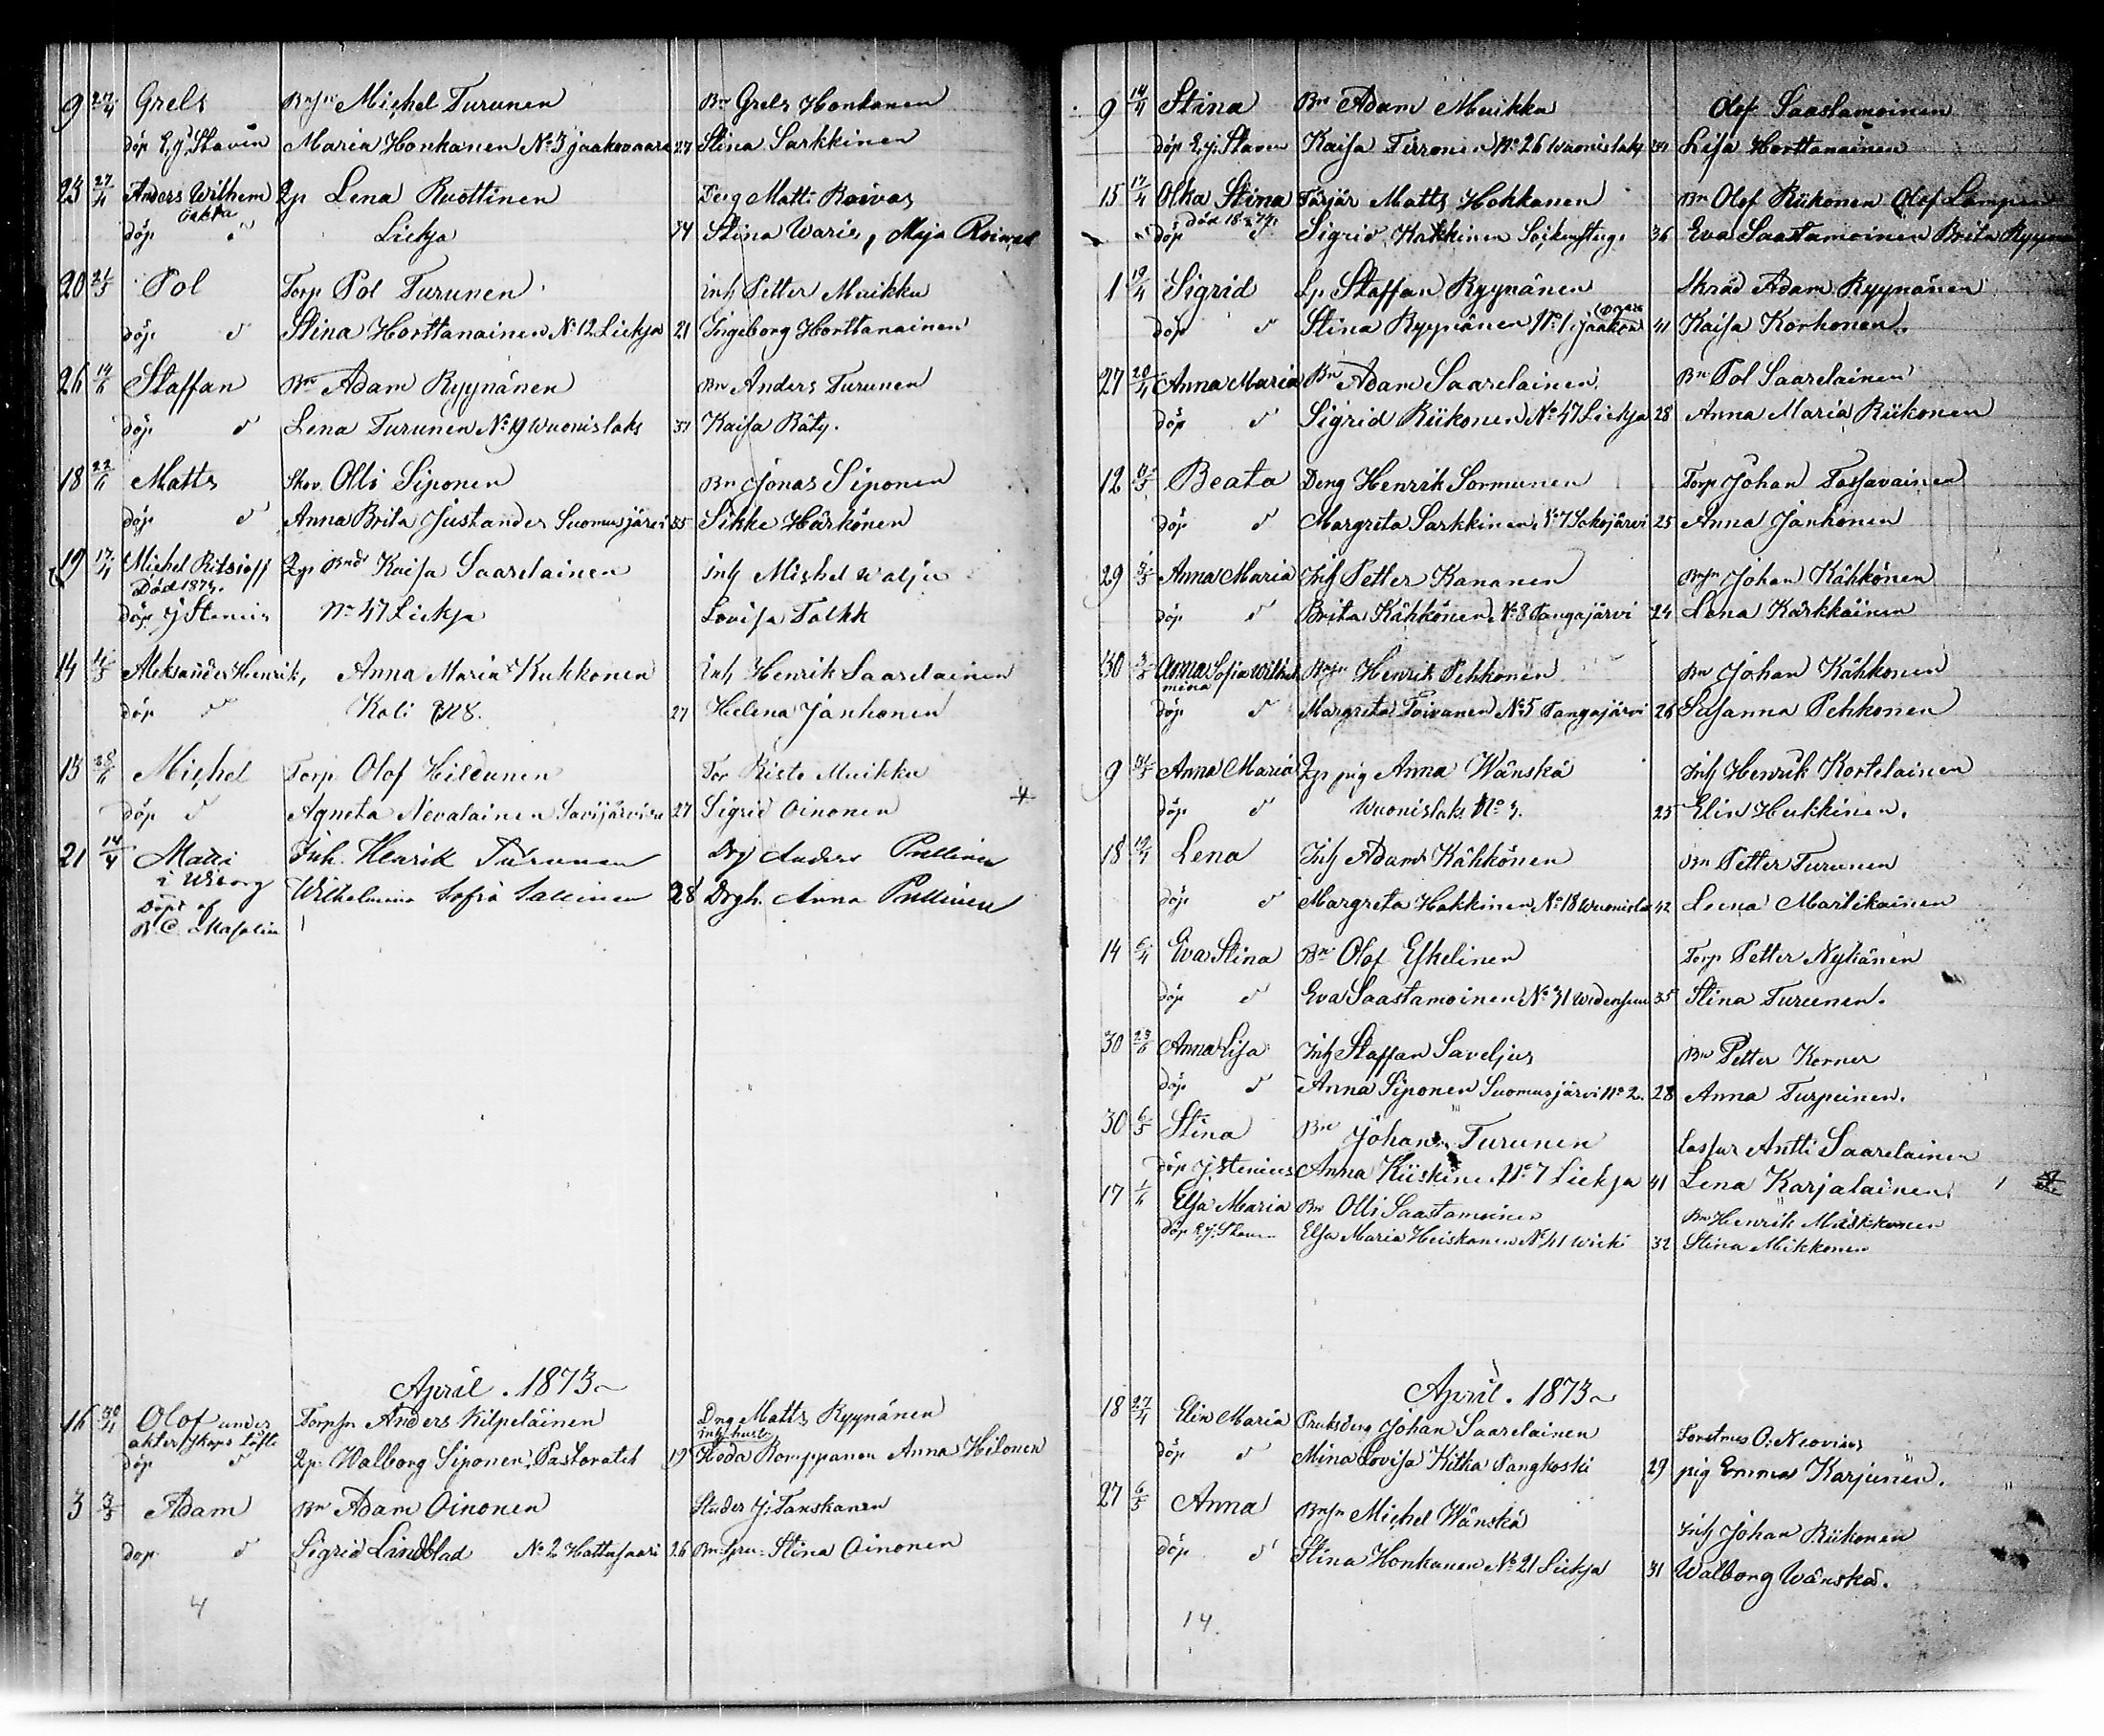 9 27/4 Grels Bnsn Michel Turunen Bn Grels Honkanen
döp E.J. Stavén Maria Honkanen No 3 Jaakovaara 27 Stina Sarkkinen
23 27/4 Anders Wilhem Qp Lena Ruottinen Deng Matti Roivas
oäkta
döp d Lieksa 34 Stina Waris, Maja Roivas
20 21/5 Pol Torp Pol Turunen inh Petter Muikku
döp d Stina Horttanainen No 12 Lieksa 21 Ingeborg Horttanainen
26 14/6 Staffan Bn Adam Ryynänen Bn Anders Turunen
döp d Lena Turunen No 19 Wuonislaks 37 Kaisa Räty.
18 22/6 Matts Skov. Olli Siponen Bn Jonas Siponen
döp d Anna Brita Justander Suomusjärvi 35 Sikke Härkönen
19 17/4 Michel Ritsioff Qp Bnd Kaisa Saarelainen Inh Michel Walju
Död 1873.
döp J Stenius No 47 Lieksa Lovisa Tolkk
14 11/5 Aleksander Henrik, Anna Maria Kukkonen inh Henrik Saarelainen
döp d Koli No 8. 27 Helena Janhonen
13 28/6 Michel Torp Olof Hiltunen Tor Risto Muikku
döp d Agneta Nevalainen Savijärvi 27 Sigrid Oinonen 4
21 14/4 Matti Inh. Henrik Turunen Drg Anders Pullinen
i Wiborg Wilhelmina Sofia Sallinen 28 Drgh. Anna Pullinen
Döpt af
B. C. Masalin
April. 1873
16 30/4 Olof under Torpsn Anders Kilpeläinen Dng Matts Ryynänen
akterskaps löfte inh hust
döp d Qp. Walborg Siponen, Pastoratet 19 Hoda Romppanen Anna Hilonen
3 3/5 Adam Bn Adam Oinonen Studer J: Tanskanen
döp d Sigrid Lindblad No 2 Hattusaari 26 Bn hru: Stina Oinonen
4
9 14/4 Stina Bn Adam Muikku Olof Saastamoinen
döp E.J. Staven Kaisa Tirronen No 26 Wuonislaks 34 Lisa Horttanainen
15 17/4 Olka Stina Färjär Matts Hokkanen Bn Olof Riikonen Olof Lampen
död 18 74.
döp d Sigrid Hakkinen 36 Eva Saastamoinen Brita
1 19/4 Sigrid Lp Staffan Ryynänen Skräd Adam Ryynänen
döp d Stina Ryynänen No 1. Jaakon 41 Kaisa Korhonen.
27 20/4 Anna Maria Bn Adam Saarelainen Bn Pol Saarelainen
döp d Sigrid Riikonen No 47 Lieksa 28 Anna Maria Riikonen
12 11/5 Beata Deng Henrik Sormunen Torp Johan Tossavainen
döp d Margreta Sarkkinen, No 7 Sokojärvi 25 Anna Janhonen
29 4/5 Anna Maria Inh Petter Kananen Bnsn Johan Kähkönen
döp d Brita Kähkönen, No 8 Pangajärvi 24 Lena Karkkäinen
30 3/5 Anna Sofia Wilhel Bnsn Henrik Pehkonen Bn Johan Kähkonen
mina
döp d Margreta Toivanen No 5 Pangajärvi 26 Susanna Pehkonen
9 11/5 Anna Maria Qp pig Anna Wänskä Inh Henrik Kortelainen
döp d Wuonislaks No 3. 25 Elin Hukkinen.
18 19/4 Lena Inh Adam Kähkönen Bn Petter Turunen
döp d Margreta Hakkinen, No 18 Wuonisla 42 Leena Martikainen
14 6/4 Eva Stina Bn Olof Eskelinen Torp Petter Nykänen
döp d Eva Saastamoinen No 31 Widensuu 35 Stina Turunen.
30 23/6 Anna Lisa Inh Staffan Saveljus Bn Petter Korner
döp d Anna Siponen Suomusjärvi No 2. 28 Anna Turpeinen.
30 6/5 Stina Bn Johan Turunen Lossur Antti Saarelainen
döp J. Stenius Anna Kiiskinen No 7 Lieksa 41 Lena Karjalainen.
17 1/6 Elsa Maria Bn Olli Saastamoinen Bn Henrik Mikkonen
döp E.J. Staven Elsa Maria Heiskanen No 41 Wieki 32 Stina Mikkonen
April. 1873
18 27/4 Elin Maria Bruksdreng Johan Saarelainen Forstmes O: Neovius
döp d Mina Lovisa Kitka Pangkoski 29 pig Emma Karjunen.
27 6/5 Anna Bnsn Michel Wänskä Inh Johan Riikonen
döp d Stina Honkanen No 21 Lieksa 31 Walborg Wänskä.
14